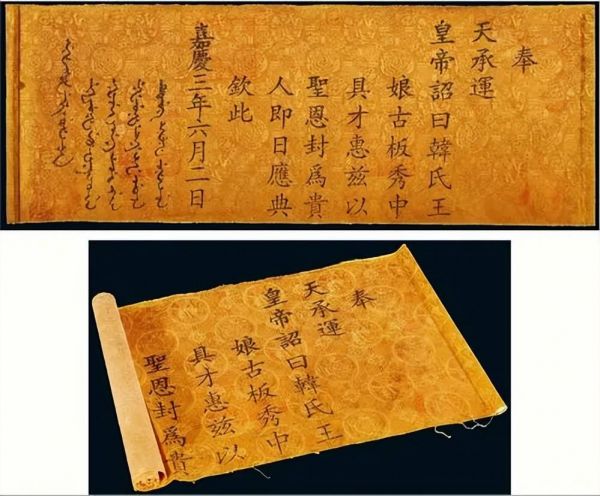 奉
天承運
皇帝詔曰韓氏王
娘古板秀中
具才惠茲以
聖恩封爲貴
人即日應典
欽此
嘉慶三年六月二日
奉
天承運
皇帝詔曰韓氏王
娘古板秀中
具才惠茲以
聖恩封爲貴